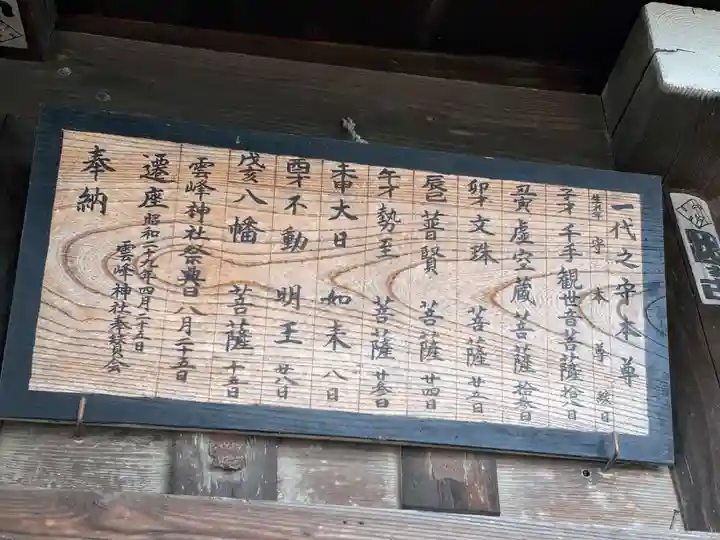 一代之守本尊
生年 守本尊 縁日
子才 千手観世音菩薩 拾七日
丑寅 虚空蔵菩薩 拾三日
卯才 文珠 菩薩 廿五日
辰巳 普賢 菩薩 廿四日
午才 勢至 菩薩 廿三日
未申 大日 如来 八日
酉才 不動 明王 廿八日
戌亥 八幡 菩薩 十五日
雲峰神社祭典日 八月二十五日
遷座 昭和二十九年四月二十三日
雲峰神社奉賛会
奉納